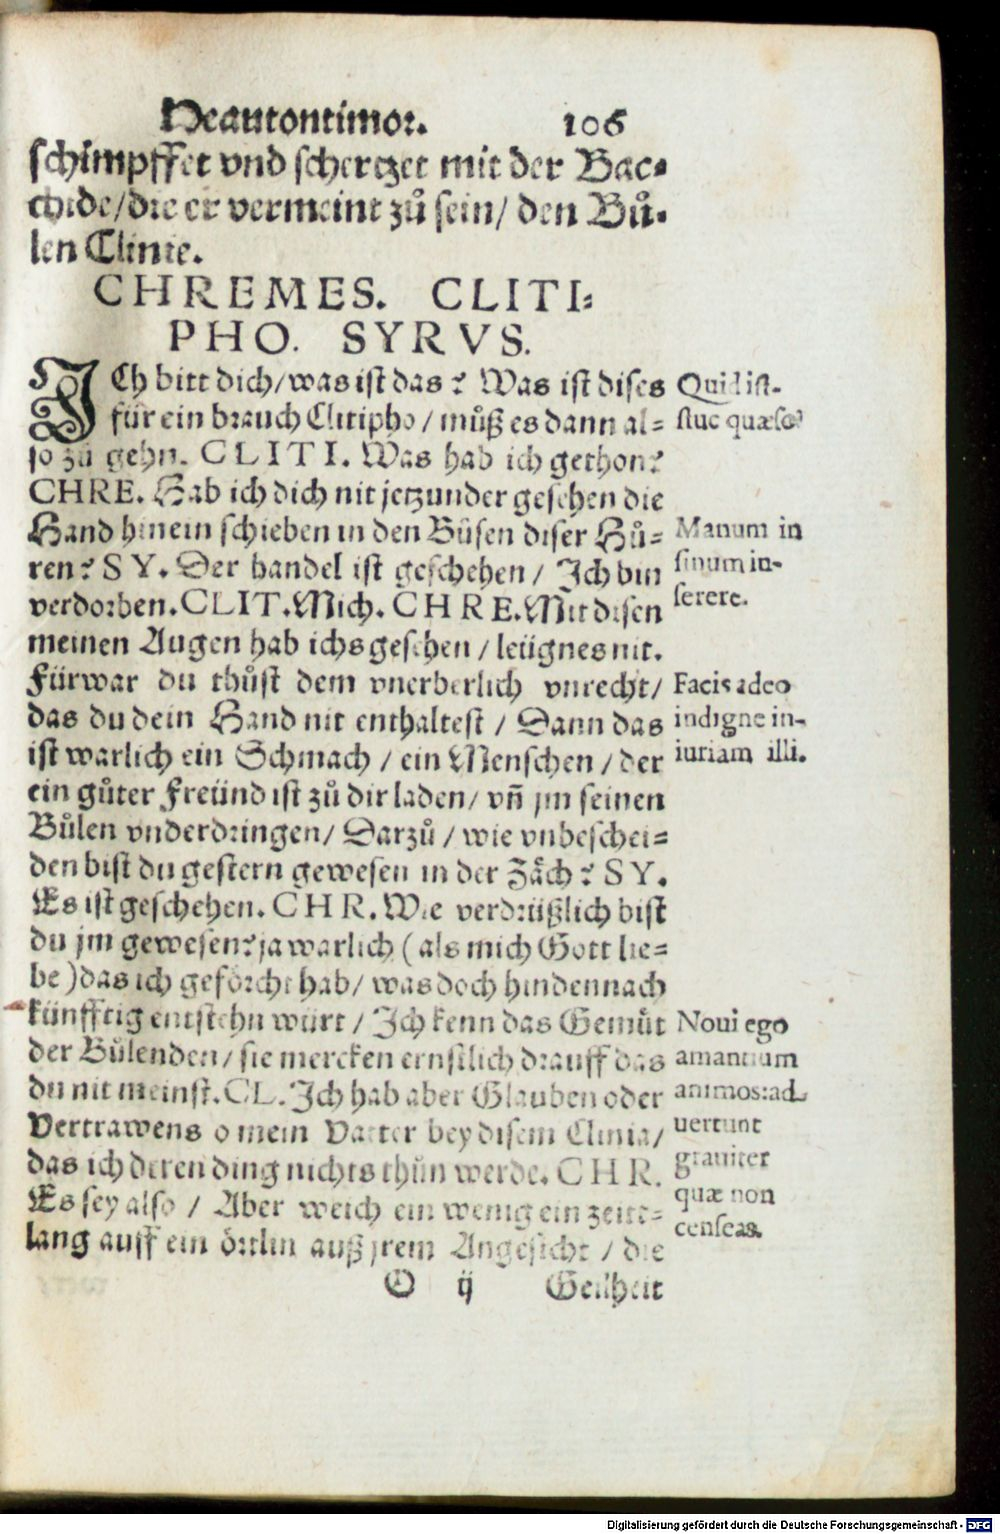 Heautontimor. 106
schimpffet vnd schertzet mit der Bac⸗
chide/die er vermeint zů sein/ den Bů⸗
len Clinie.
CHREMES. CLITI⸗
PHO. SYRVS.
ICh bitt dich/was ist das? Was ist dises
für ein brauch Clitipho/ můß es dann al⸗
so zů gehn. CLITI. Was hab ich gethon?
CHRE. Hab ich dich nit jetzunder gesehen die
Hand hinein schieben in den Bůsen diser Hů⸗
ren? SY. Der handel ist geschehen/ Ich bin
verdorben. CLIT. Mich. CHRE. Mit disen
meinen Augen hab ichs gesehen/ leügnes nit.
Fürwar du thůst dem vnerberlich vnrecht/
das du dein Hand nit enthaltest/ Dann das
ist warlich ein Schmach/ ein Menschen/ der
ein gůter Freünd ist zů dir laden/ vñ jm seinen
Bůlen vnderdringen/ Darzů/ wie vnbeschei⸗
den bist du gestern gewesen in der Zäch? SY.
Es ist geschehen. CHR. Wie verdrüßlich bist
du jm gewesen? ja warlich (als mich Gott lie⸗
be) das ich geförcht hab/ was doch hindennach
künfftig entstehn würt/ Ich kenn das Gemüt
der Bůlenden/ sie mercken ernstlich drauff das
du nit meinst. CL. Ich hab aber Glauben oder
Vertrawens o mein Vatter bey disem Clinia/
das ich deren ding nichts thůn werde. CHR.
Es sey also/ Aber weich ein wenig ein zeitt⸗
lang auff ein örtlin auß jrem Angesicht/ die
O ij Geilheit
Quid ist-
stuc quæso?
Manum in
sinum in-
serere.
Facis adeo
indigne in-
iuriam illi.
Noui ego
amantium
animos: ad-
uertunt
grauiter
quæ non
censeas.
Digitalisierung gefördert durch die Deutsche Forschungsgemeinschaft - DFG